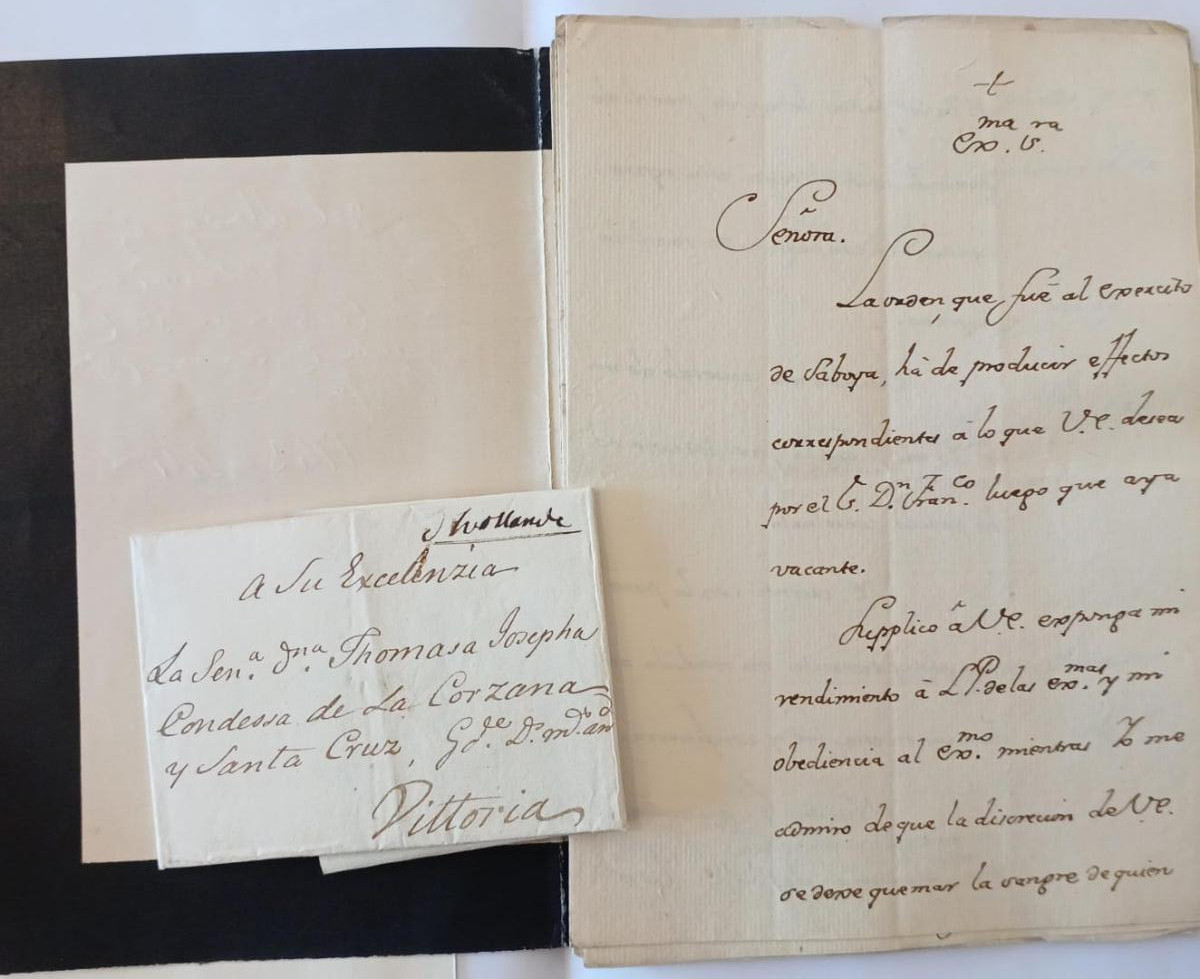 A Su Excelenzia
La Sen.ª Dña. Thomasa Josepha
Condessa de La Corzana
y Santa Cruz, Gde. Dª
Vittoria
+
ma ra
Ex. S.
Señora.
La orden, que fuè al exercito
de Saboya, hà de producir effectos
correspondientes à lo que V.e. desea
por el S.r D.n Fran.co luego que aya
vacante.
Supplico à V.e. exponga mi
rendimiento à de las ex.mas y mi
obediencia al ex.mo mientras Yo me
admiro de que la discrecion de V.e.
se dexe quemar la sangre de quien